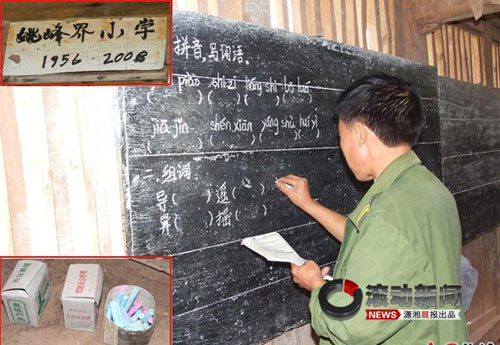 姚峰界小学
1956－2008
拼音,写词语。
piào shī zi háng shi bō luó
(    ) (    ) (    ) (    )
jiā jǐn shén xiān yáng shù huí yì
(    ) (    ) (    ) (    )
二 组词:
导(    ) 遥(    )
异(    ) 摇(    )
滚动新闻
NEWS 潇湘晨报出品